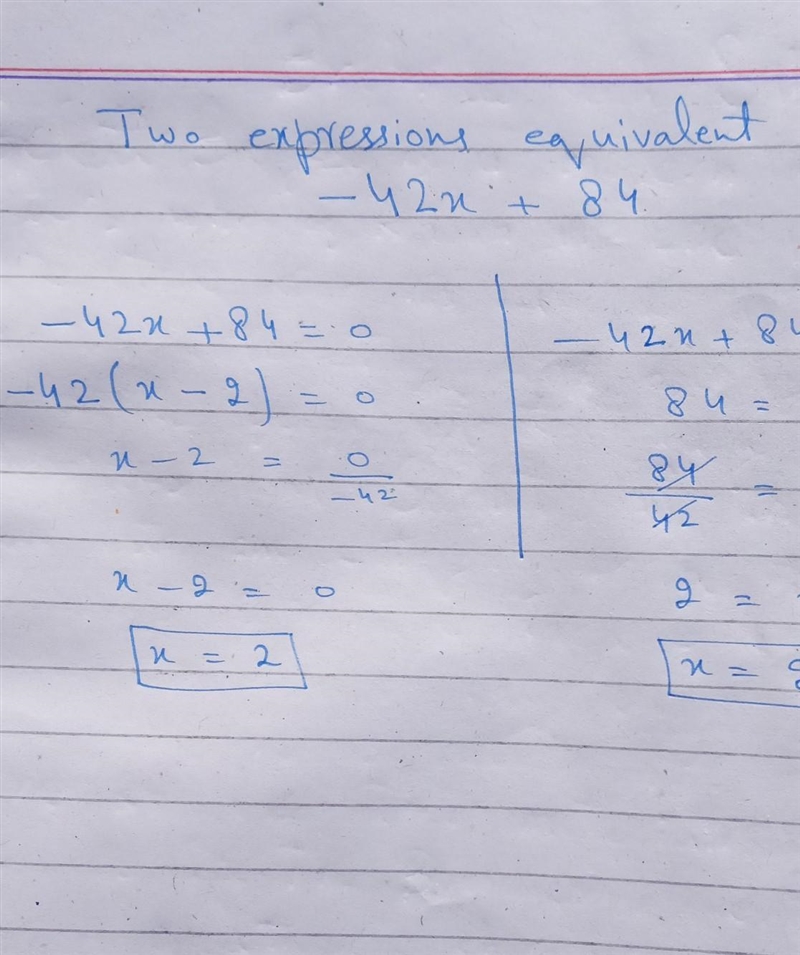 Two expressions equivalent
-42x + 84
-42x + 84 = 0
-42(x - 2) = 0
x - 2 = 0/-42
x - 2 = 0
x = 2
-42x + 84
84 =
84/42 =
2 =
x =